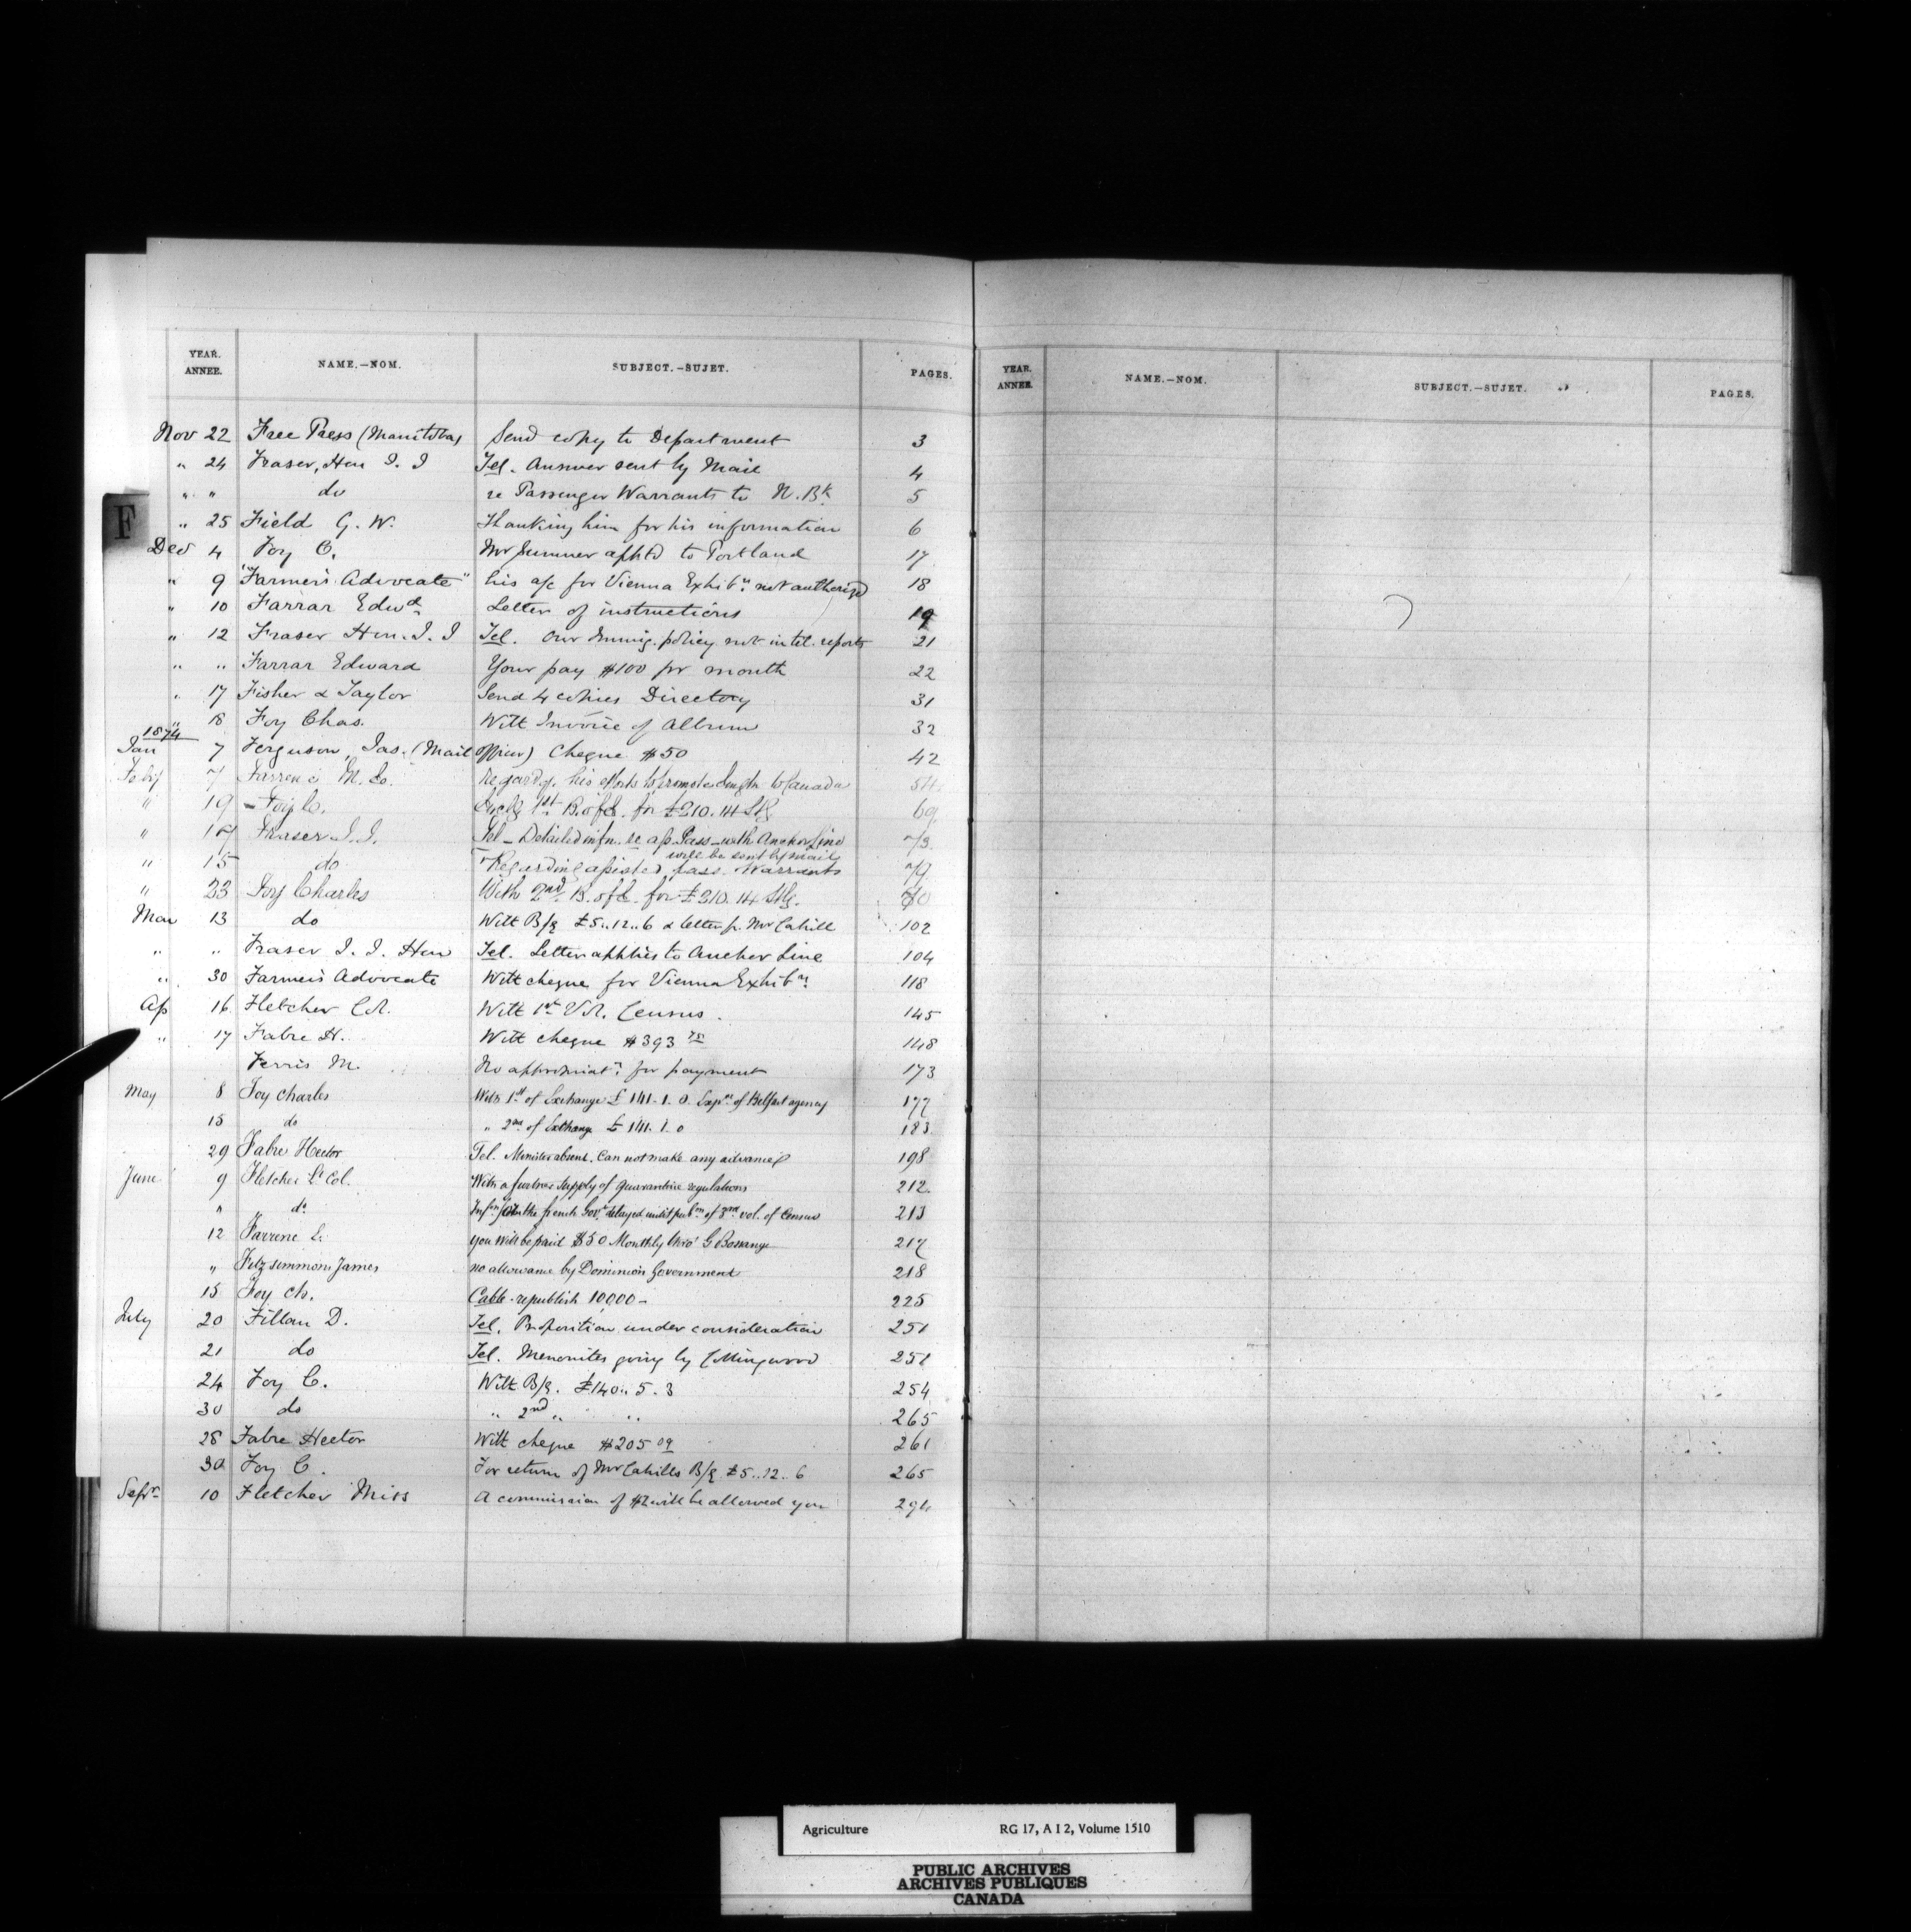 YEAR. ANNEE. NAME.—NOM. SUBJECT.—SUJET. PAGES.
YEAR. ANNEE. NAME.—NOM. SUBJECT.—SUJET. PAGES.
F
Nov 22 Free Press (Manitoba) Send copy to Department 3
" 24 Fraser, Hon J. J Tel. Answer sent by Mail 4
" " do re Passenger Warrants to N. Bk 5
" 25 Field G. W. Thanking him for his information 6
Dec 4 Foy C. Mr Sumner apptd to Portland 17
" 9 "Farmer's Advocate" his a/c for Vienna Exhibn. not authorized 18
" 10 Farrar Edwd Letter of instructions 19
" 12 Fraser Hon. J. J Tel. Our Immig. policy not in tel. reports 21
" " Farrar Edward Your pay $100 pr month 22
" 17 Fisher & Taylor Send 4 copies Directory 31
" 18 Foy Chas. With Invoice of Album 32
1874
Jan 7 Ferguson, Jas. (Mail Officer) Cheque $50 42
Feby 7 M. Regardg. his efforts to promote to Canada 54
" 19 Foy C. 1st B. of E. for £210. 14 Stg 69
" 17 Fraser J. J. Tel - Detailed infn. re Pass - with Anchor Line 73
will be sent by mail
" 15 do Regarding assisted pass. Warrants 79
" 23 Foy Charles With 2nd B. of E. for £210. 14 Stg. 80
Mar 13 do With B/E £5..12..6 & letter fr. Mr Cahill 102
" " Fraser J. J. Hon Tel. Letter applies to Anchor Line 104
" 30 Farmer's Advocate With cheque for Vienna Exhibn. 118
Ap 16 Fletcher Col. With 1st Vol. Census. 145
" 17 Fabre H. With cheque $393 75 148
Ferris M. No appropriatn. for payment 173
May 8 Foy Charles With 1st of Exchange £141. 1. 0. Expns of Belfast agency 177
15 do " 2nd of Exchange £141. 1. 0 183
29 Fabre Hector Tel. Minister absent. Can not make any advance 198
June 9 Fletcher Lt Col. With a further supply of quarantine regulations 212
" do Infn for the french Govt. delayed until pubn of 3rd vol. of Census 213
12 Farrene L. you will be paid $50 Monthly thro' G Bossange 217
" Fitzsimmons James no allowance by Dominion Government 218
15 Foy Ch. Cable - republish 10,000 - 225
July 20 Fillan D. Tel. Proposition under consideration 251
21 do Tel. Menonites going by Collingwood 251
24 Foy C. With B/E. £140.. 5. 3 254
30 do " 2nd " " 265
28 Fabre Hector With cheque $205 09 261
30 Foy C. For return of Mr Cahills B/E £5..12..6 265
Sepr. 10 Fletcher Miss A commission of $2 will be allowed you 294
Agriculture RG 17, A I 2, Volume 1510
PUBLIC ARCHIVES
ARCHIVES PUBLIQUES
CANADA